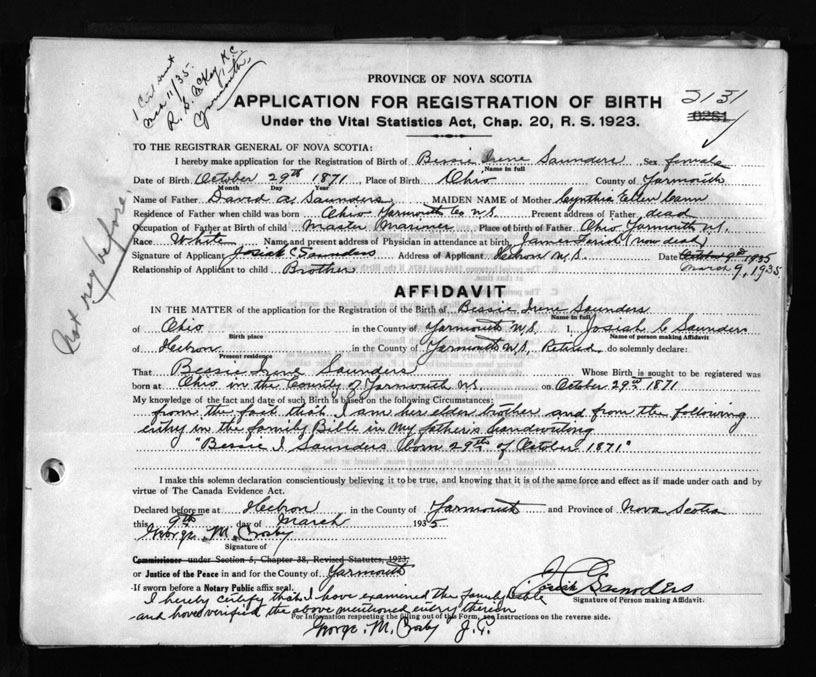 1 Cert sent
Mch 11/35.
R. S. McKay K.C.
Yarmouth
PROVINCE OF NOVA SCOTIA
APPLICATION FOR REGISTRATION OF BIRTH
2131
Under the Vital Statistics Act, Chap. 20, R. S. 1923.
0261
TO THE REGISTRAR GENERAL OF NOVA SCOTIA:
I hereby make application for the Registration of Birth of Bessie Irene Saunders Sex female
Name in full
Date of Birth October 29th 1871, Place of Birth Ohio County of Yarmouth
Month Day Year
Name of Father David A. Saunders MAIDEN NAME of Mother Cynthia Ellen Cann
Residence of Father when child was born Ohio Yarmouth Co N.S. Present address of Father dead
Occupation of Father at Birth of child Master Mariner Place of birth of Father Ohio Yarmouth N.S.
Race White Name and present address of Physician in attendance at birth James (now dead)
Signature of Applicant Josiah C Saunders Address of Applicant Hebron N.S. Date October 9th 1935
March 9, 1935
Relationship of Applicant to child Brother
Not reg before.
AFFIDAVIT
IN THE MATTER of the application for the Registration of the Birth of Bessie Irene Saunders
Name in full
of Ohio in the County of Yarmouth N.S. I, Josiah C Saunders
Birth place Name of person making Affidavit
of Hebron in the County of Yarmouth N.S. Retired do solemnly declare:
Present residence
That Bessie Irene Saunders Whose Birth is sought to be registered was
born at Ohio in the County of Yarmouth N.S. on October 29th 1871
My knowledge of the fact and date of such Birth is based on the following Circumstances:
from the fact that I am her elder brother and from the following
entry in the family Bible in my father's handwriting
"Bessie I Saunders born 29th of October 1871"
I make this solemn declaration conscientiously believing it to be true, and knowing that it is of the same force and effect as if made under oath and by
virtue of The Canada Evidence Act.
Declared before me at Hebron in the County of Yarmouth and Province of Nova Scotia
this 9th day of March 1935
George M. Crosby
Signature of
Commissioner under Section 5, Chapter 38, Revised Statutes, 1923,
or Justice of the Peace in and for the County of Yarmouth
If sworn before a Notary Public affix seal.
Josiah C Saunders
Signature of Person making Affidavit.
I hereby certify that I have examined the family Bible
and have verified the above mentioned entry therein
For Information respecting the filling out of this Form, see Instructions on the reverse side.
George M. Crosby J.P.